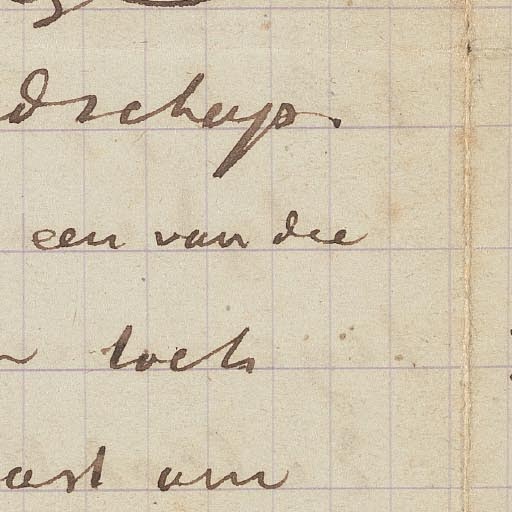 dschap.
een van die
toch
ast om